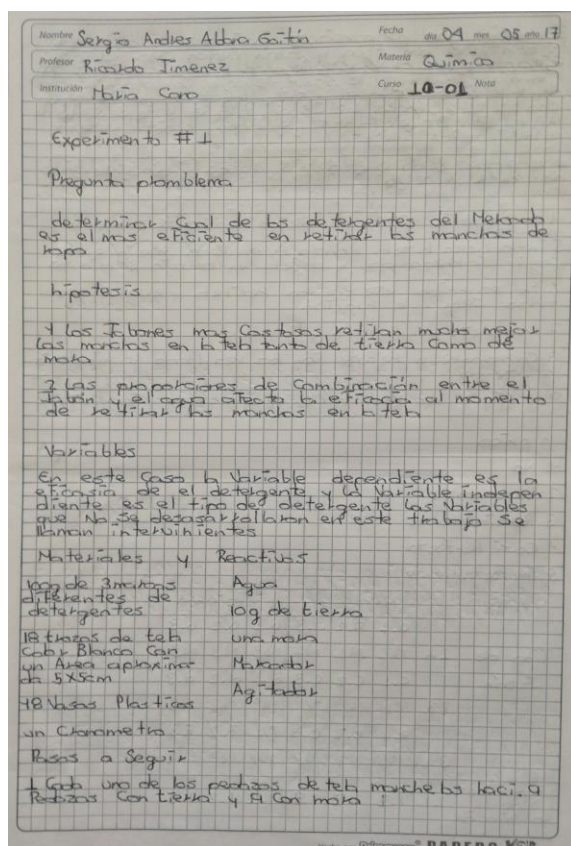 Nombre Sergio Andres Albra Gaitán Fecha día 04 mes 05 año 17
Profesor Ricardo Jimenez Materia Quimica
Institución Maria Cano Curso 10-01 Nota
Experimento #1
Pregunta promblema
determinar Cual de los detergentes del Mercado
es el mas eficiente en retirar las manchas de
ropa
hipotesis
1 Los Jabones mas Costosos retiran mucho mejor
Las manchas en la tela tanto de tierra Como de
mora
2 Las proporciones de Combinación entre el
Jabón y el agua afecta la eficacia al momento
de retirar las manchas en la tela
Variables
En este Caso la Variable dependiente es la
eficasia de el detergente y la Variable indepen
diente es el tipo de detergente Las Variables
que No se desasarrollaron en este trabajo se
llaman intervinientes
Materiales y Reactivos
100g de 3 marcas Agua
diferentes de
detergentes 10g de tierra
18 trozos de tela una mora
Color Blanco Con
un Area aproxima Marcador
da 5x5cm Agitador
18 Vasos Plasticos
un Cronometro
Pasos a Seguir
1 Cada uno de los pedazos de tela manchelos haci. 9
Pedazos Con tierra y 9 Con mora